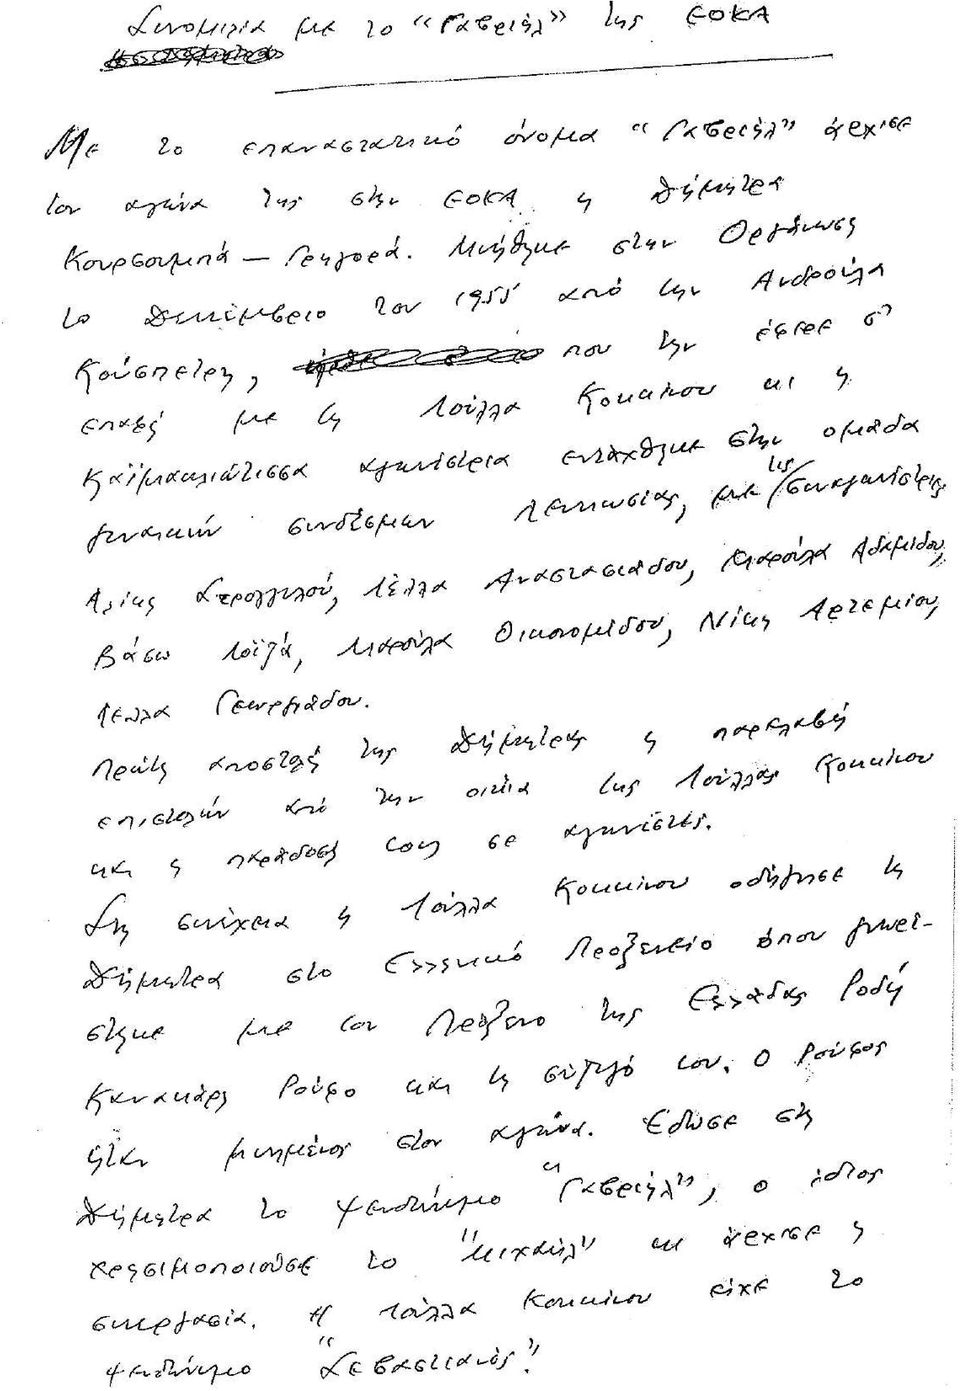 Συνομιλία με το «Γαβριήλ» της ΕΟΚΑ
Με το επαναστατικό όνομα "Γαβριήλ" άρχισε
τον αγώνα της στην ΕΟΚΑ η Δήμητρα
Κουρσουμπά — Γρηγορά. Μυήθηκε στην Οργάνωση
το Δεκέμβριο του 1955 από την Ανδρούλα
Κούσπετρη, που την έφερε σ'
επαφή με τη Λούλλα Κοκκίνου και η
Καϊμακλιώτισσα αγωνίστρια εντάχθηκε στην ομάδα
γυναικών συνδέσμων Λευκωσίας, με τις συναγωνίστριες
Αλίκη Στρογγυλού, Στέλλα Αναστασιάδου, Μαρούλα Αδαμίδου,
Βάσω Λοΐζα, Μαρούλα Οικονομίδου, Νίκη Αρτεμίου,
Γεωργιάδου.
Πρώτη αποστολή της Δήμητρας η παραλαβή
επιστολών από την οικία της Λούλλας Κοκκίνου
και η παράδοση τους σε αγωνιστές.
Στη συνέχεια η Λούλλα Κοκκίνου οδήγησε τη
Δήμητρα στο Ελληνικό Προξενείο όπου γνωρί-
στηκε με τον Πρόξενο της Ελλάδας Ροδή
Κανακάρη Ρούφο και τη σύζυγό του. Ο Ρούφος
ήταν μυημένος στον αγώνα. Έδωσε στη
Δήμητρα το ψευδώνυμο "Γαβριήλ", ο ίδιος
χρησιμοποιούσε το "Μιχαήλ" και άρχισε η
συνεργασία. Η Λούλλα Κοκκίνου είχε το
ψευδώνυμο "Σεβαστιανός".